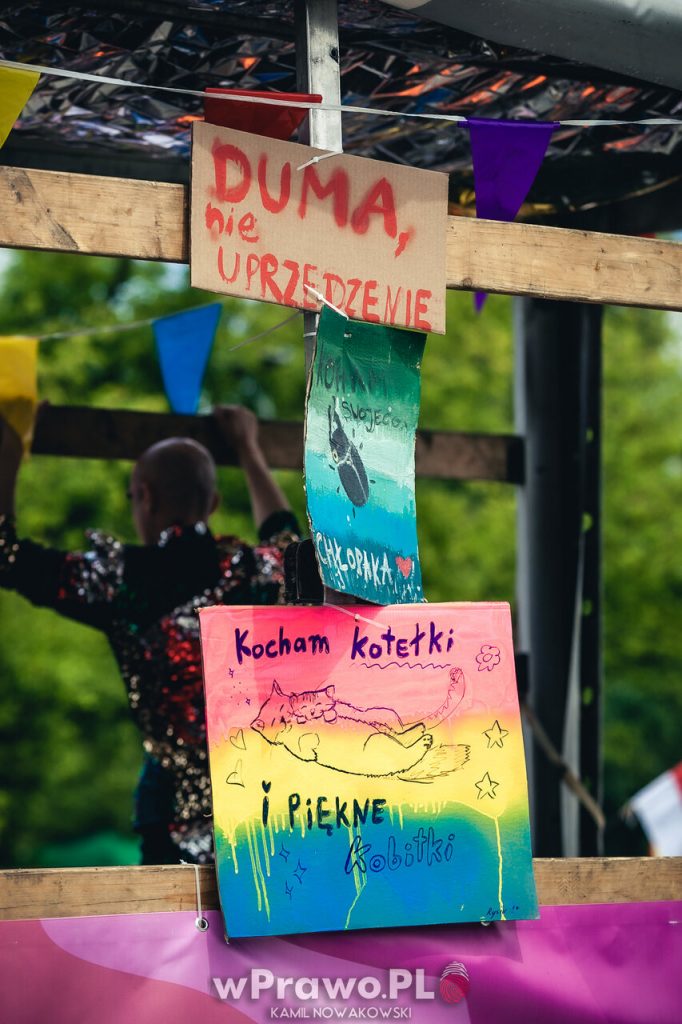 DUMA,
nie
UPRZEDZENIE
KOCHAM
SWOJEGO
CHŁOPAKA
Kocham kotełki
i PiĘKNE
kobitki
wPrawo.PL
KAMIL NOWAKOWSKI